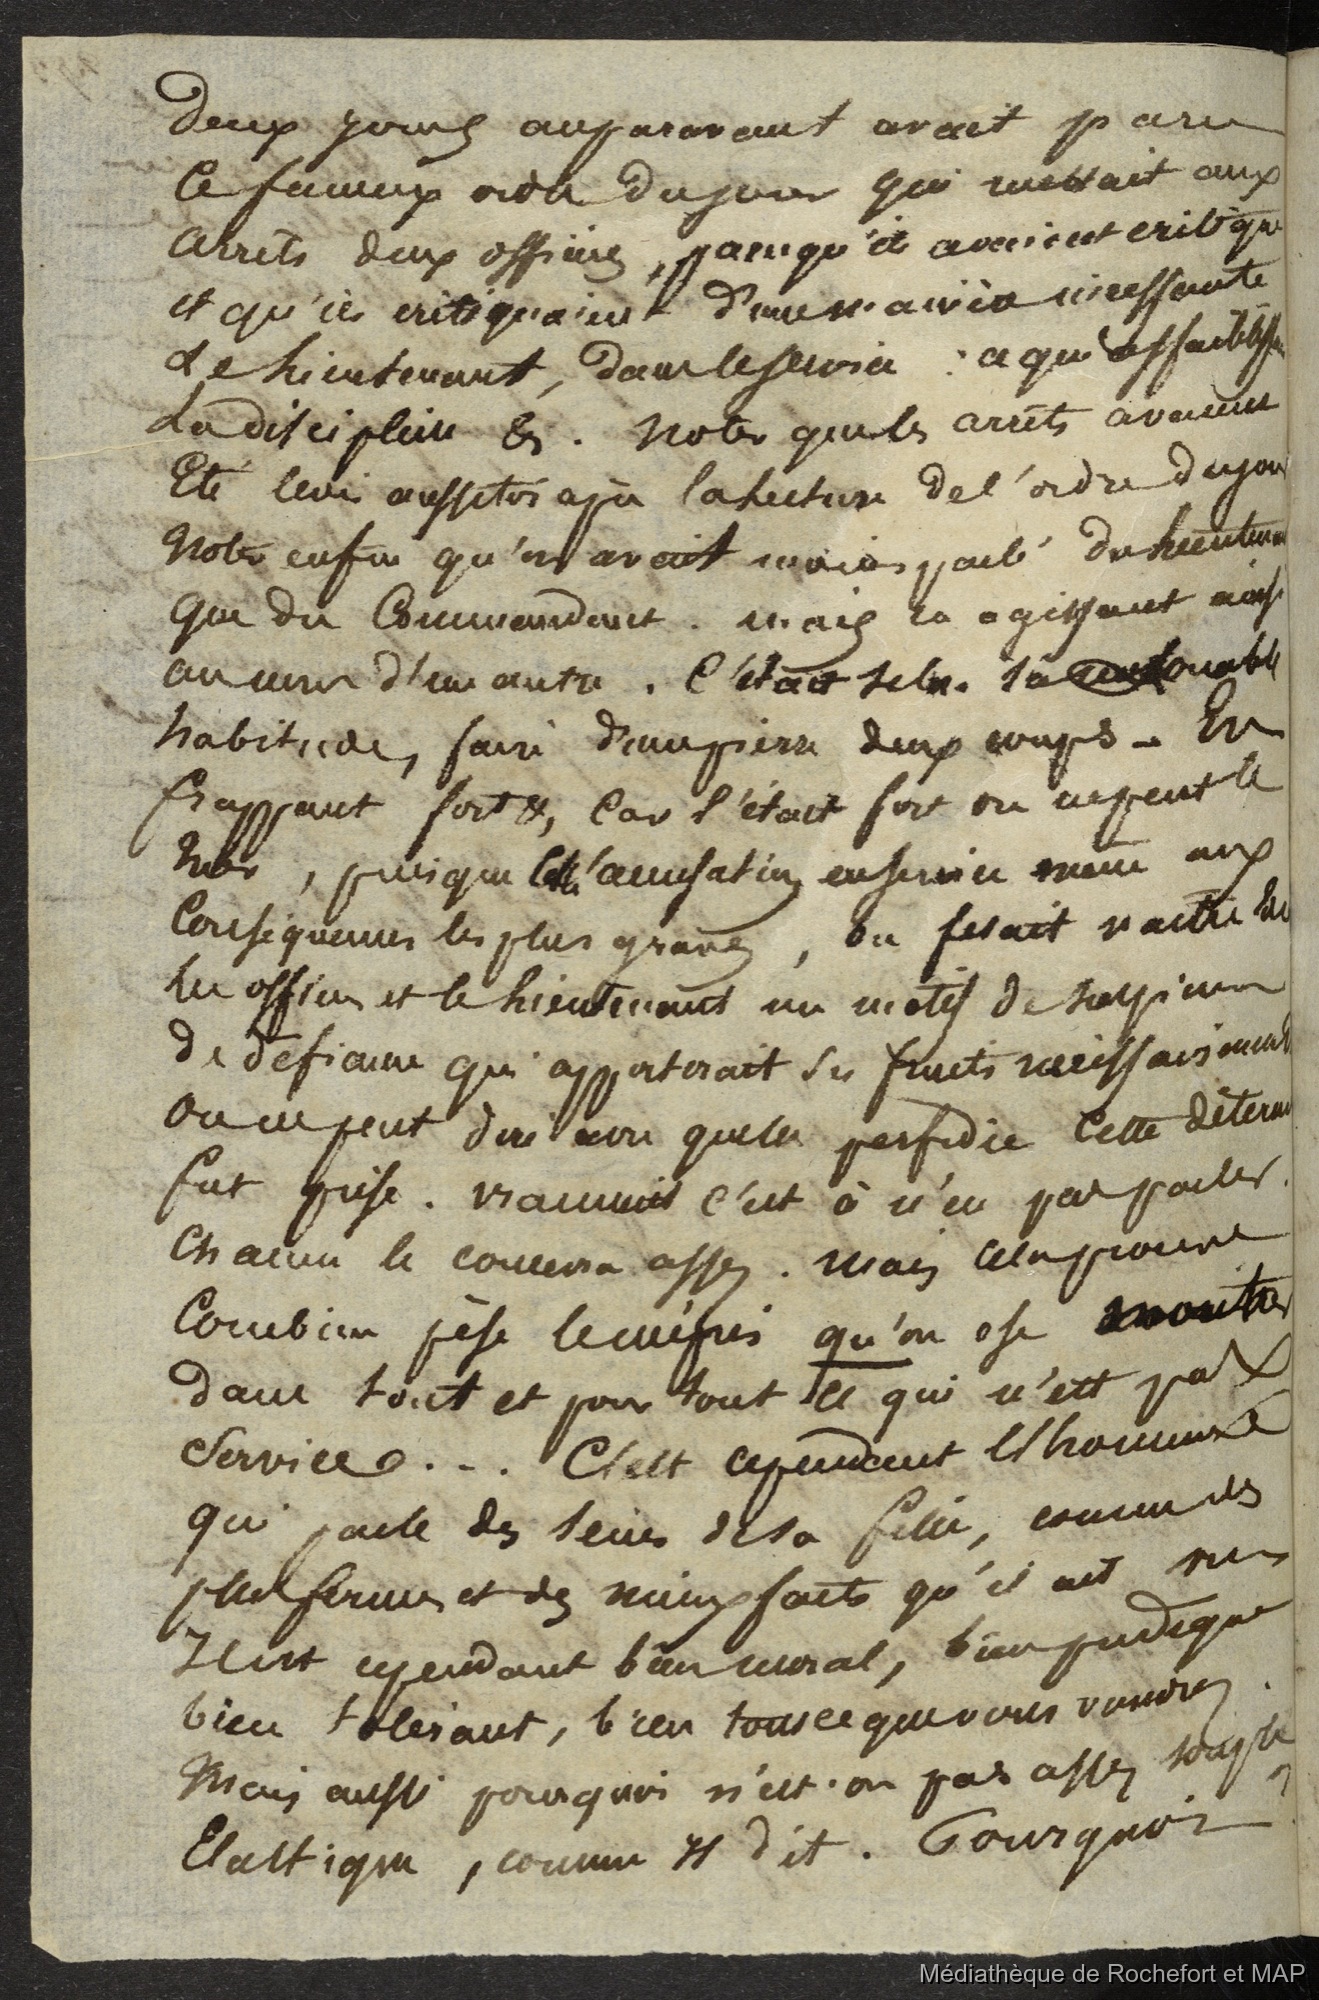 Deux jours auparavant avait paru
Ce fameux ordre du jour qui mettait aux
arrets deux officiers, parcequ'ils avaient critiqué
et qu'ils critiquaient d'une manière incessante
Le Lieutenant, dans le service : ce qui affaiblissait
La discipline &. Notez que les arrêts avaient
Eté levés aussitôt après la lecture de l'ordre du jour
Notez enfin qu'on avait moins parlé du Lieutenant
que du Commandant. mais en agissant ainsi
au nom d'un autre. C'était selon sa louable
habitude, faire d'une pierre deux coups - En
frappant fort &, Car c'était fort on ne peut le
nier, puisque cette accusation en service mène aux
Conséquences les plus graves, on fesait naitre entre
les officiers et le Lieutenant un motif de
de défiance qui apporterait ses fruits nécessairement
On ne peut dire avec quelle perfidie Cette
fut prise. vraiment c'est à n'en pas parler.
Chacun le concevra assez. Mais cela prouve
Combien pèse le mépris qu'on ose montrer
dans tout et pour tout ce qui n'est pas
Service... C'est cependant l'homme
qui parle des seins de sa fille, comme des
plus fermes et des mieux faits qu'il ait vus
Il est cependant bien moral, bien pudique
bien tolérant, bien tout ce que vous voudrez.
Mais aussi pourquoi n'est-on pas assez souple
Elastique, comme il dit. Pourquoi
Médiathèque de Rochefort et MAP